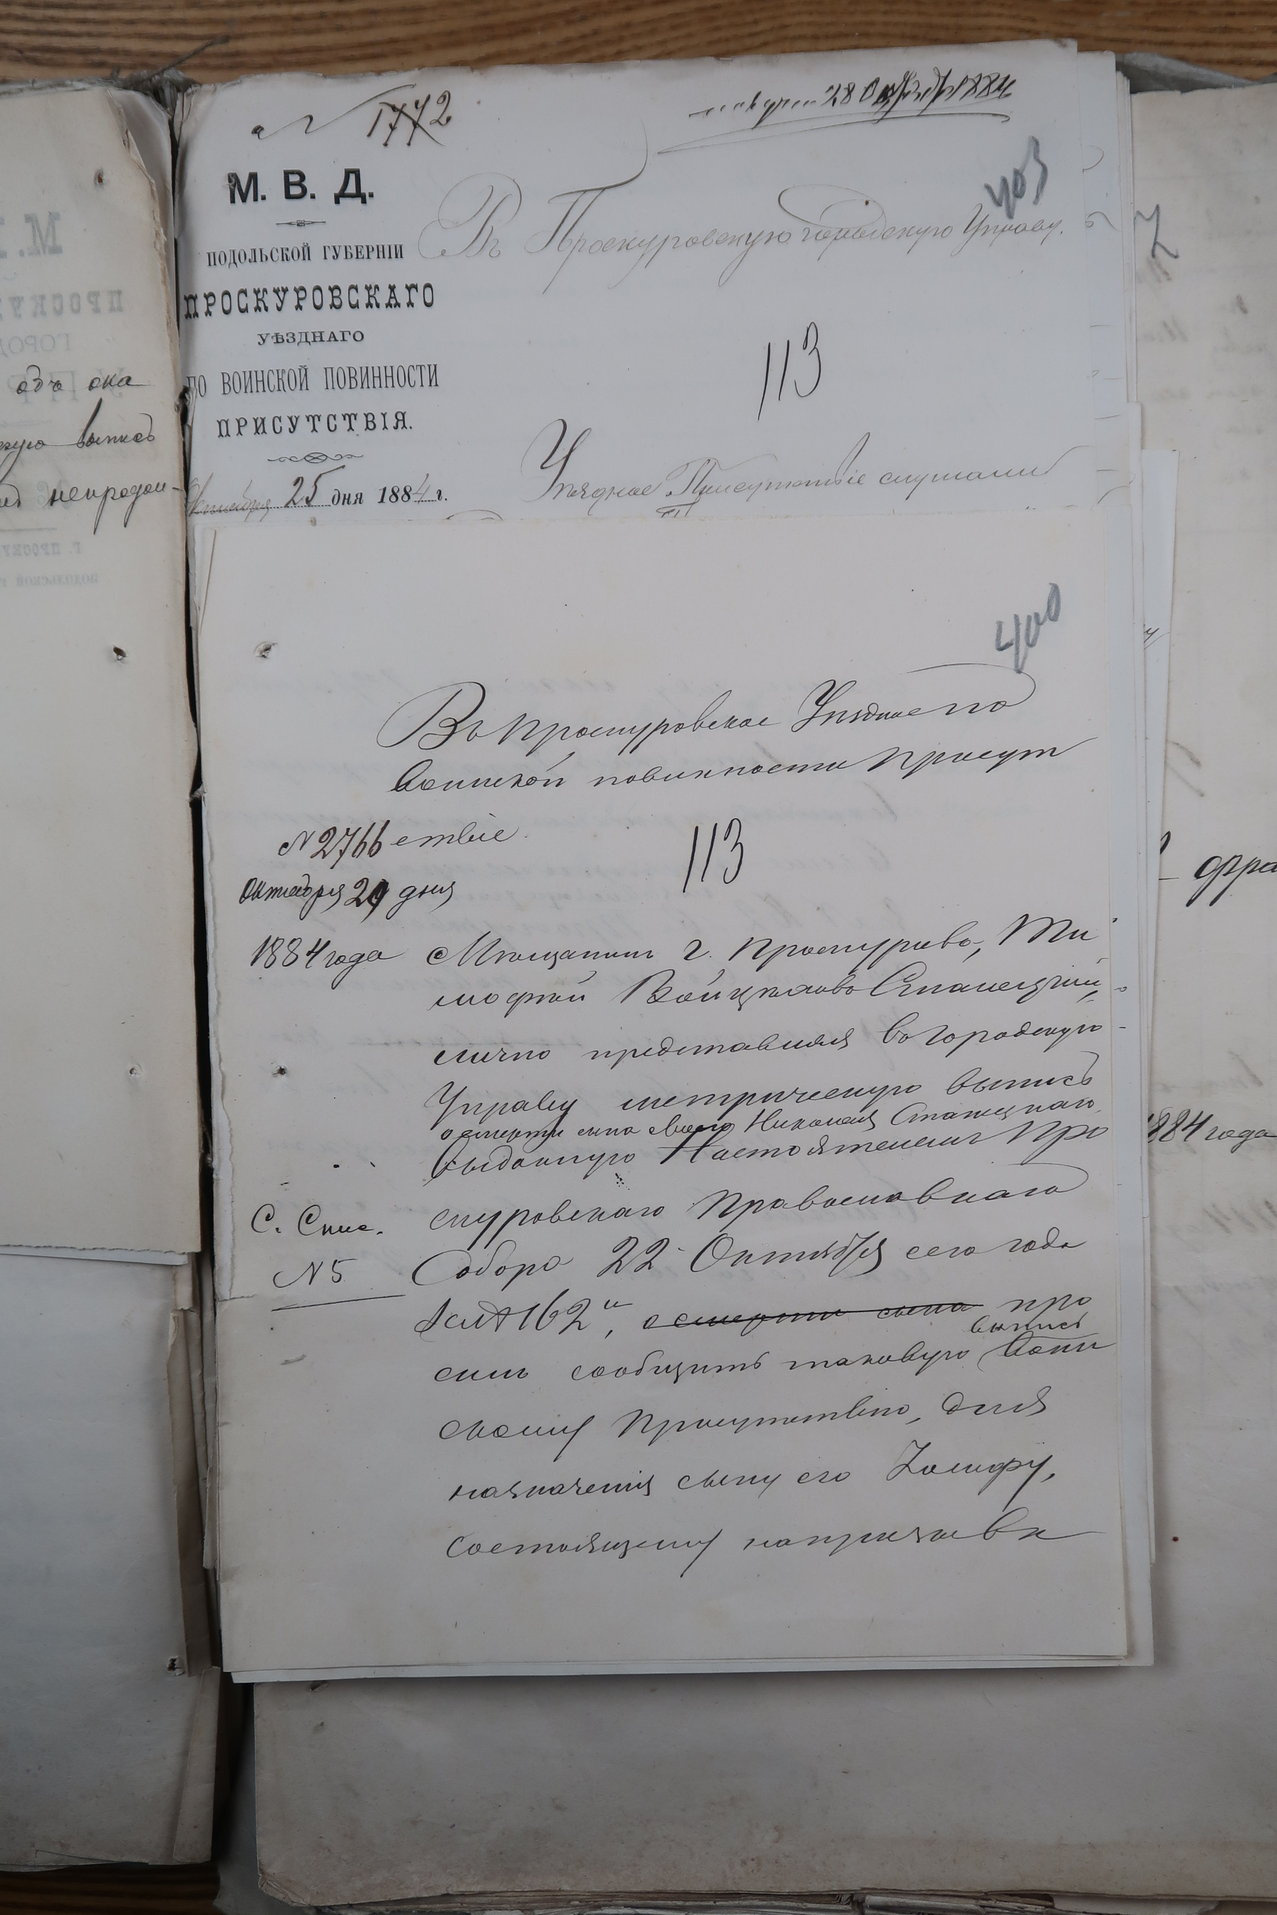 N 1772
получ. 28 Октября 1884
403
М. В. Д.
ПОДОЛЬСКОЙ ГУБЕРНІИ
ПРОСКУРОВСКАГО
УѢЗДНАГО
ПО ВОИНСКОЙ ПОВИННОСТИ
ПРИСУТСТВІЯ.
Октября 25 дня 1884 г.
Въ Проскуровскую городскую Управу.
113
Уѣздное Присутствіе
400
Въ Проскуровское Уѣздное по
воинской повинности Присут
ствіе
N 2766
Октября 29 дня
1884 года
113
Мѣщанинъ г. Проскурова, Ти
мофей Войцеховъ Станецкій,
лично представилъ въ городскую
Управу метрическую выпись
о смерти сына своего Николая Станецкаго
выданную Настоятелемъ Про
скуровскаго Православнаго
Собора 22 Октября сего года
за N 162, о смерти сына про
силъ сообщить таковую выпись Воин
скому Присутствію, для
назначенія сыну его
состоящему на призывѣ
С. Спис.
N 5
одъ ока
выпись
1884 года